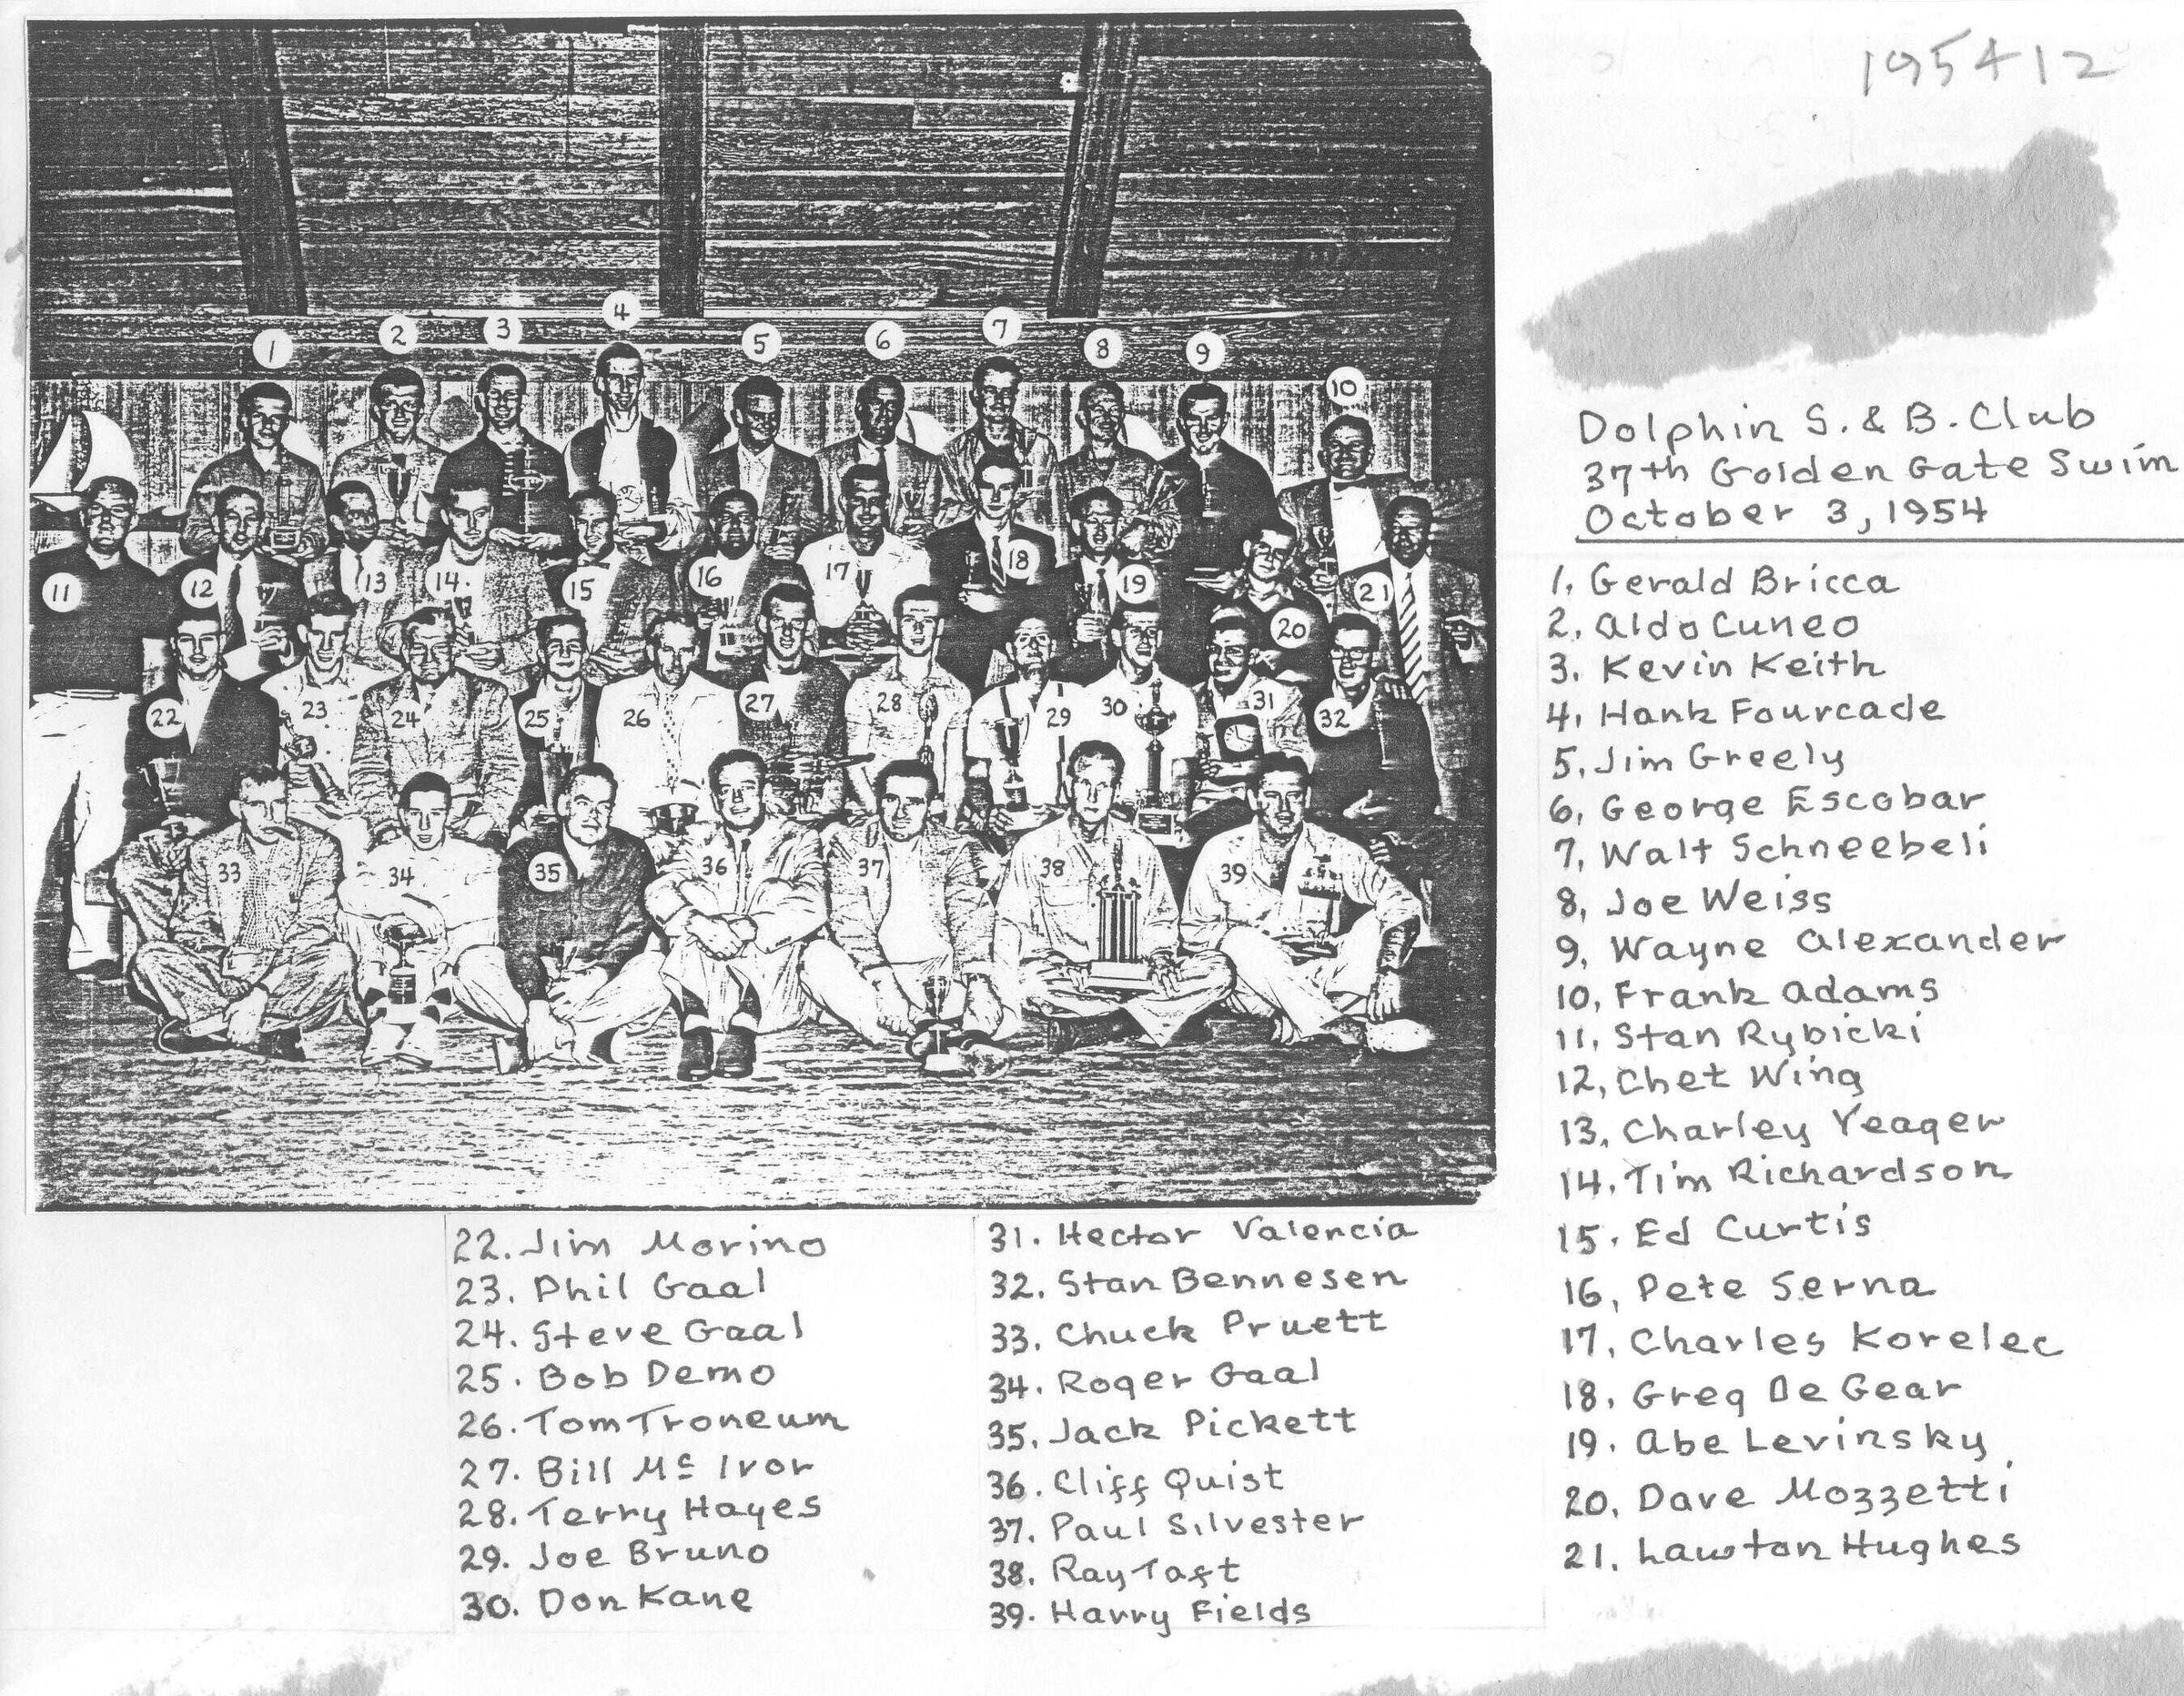 195412
Dolphin S. & B. Club
37th Golden Gate Swim
October 3, 1954
1
2
3
4
5
6
7
8
9
10
11
12
13
14.
15
16
17
18
19
20
21
22
23
24
25
26
27
28
29
30
31
32
33
34
35
36
37
38
39
1, Gerald Bricca
2, Aldo Cuneo
3. Kevin Keith
4, Hank Fourcade
5, Jim Greely
6, George Escobar
7, Walt Schneebeli
8, Joe Weiss
9, Wayne Alexander
10, Frank Adams
11, Stan Rybicki
12, Chet Wing
13, Charley Yeager
14. Tim Richardson
15. Ed Curtis
16, Pete Serna
17, Charles Korelec
18, Greg De Gear
19. Abe Levinsky
20, Dave Mozzetti
21, Lawton Hughes
22. Jim Morino
23. Phil Gaal
24. Steve Gaal
25. Bob Demo
26. Tom Troneum
27. Bill Mc Ivor
28. Terry Hayes
29. Joe Bruno
30. Don Kane
31. Hector Valencia
32. Stan Bennesen
33. Chuck Pruett
34. Roger Gaal
35. Jack Pickett
36. Cliff Quist
37. Paul Silvester
38. Ray Taft
39. Harry Fields